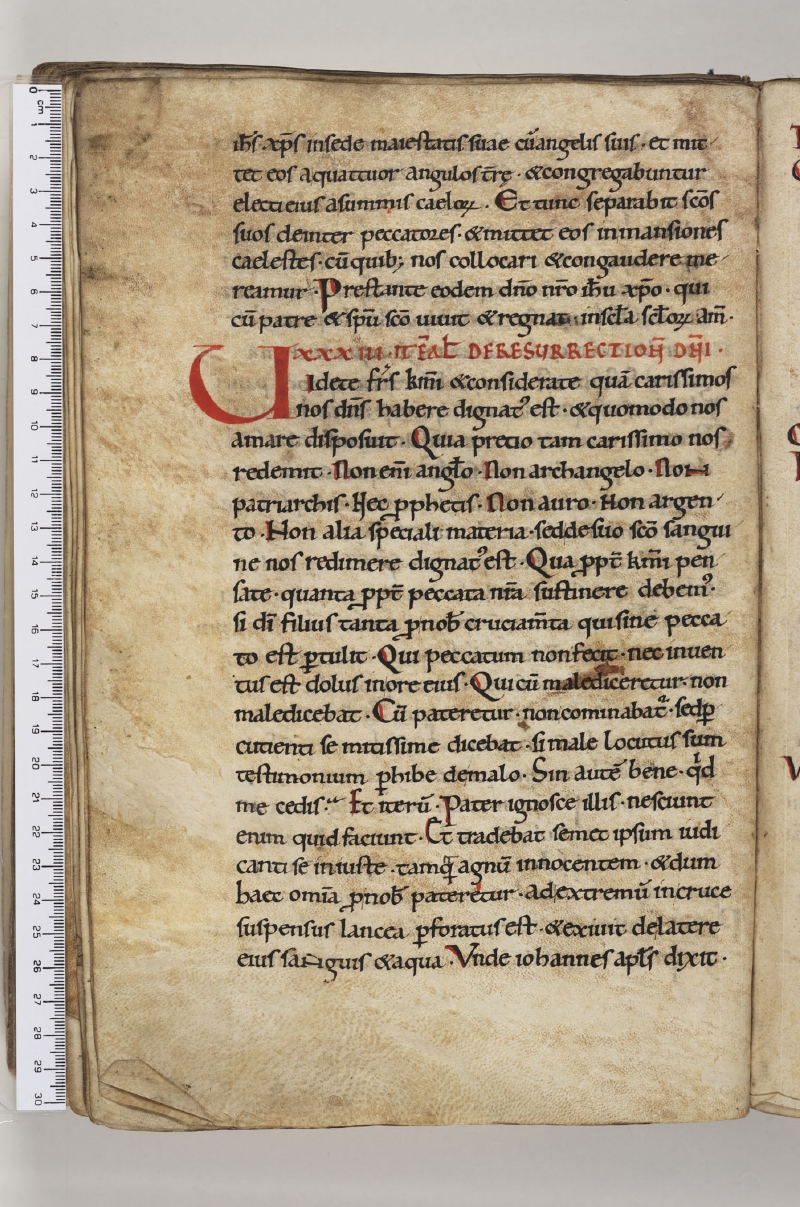 ih̅s xp̅s insede maiestatis suae cu̅ angelis suis · et mit
tet eos aquattuor angulos tr̅ę · & congregabuntur
electi eius asummis caeloꝝ · Et tunc separabit sc̅os
suos deinter peccatores · & mittet eos in mansiones
caelestes · cu̅ quib; nos collocari & congaudere me
reamur · Prestante eodem dn̅o nr̅o ih̅u xp̅o · qui
cu̅ patre & sp̅u sc̅o uiuit & regnat insc̅la sc̅loꝝ am̅ ·
XXXIII · ITE̅ ALT̅ DE RESURRECTION̅ DN̅I ·
Uidete fr̅s km̅i & considerate qua̅ carissimos
nos dn̅s habere dignatꝰ est · & quomodo nos
amare disposuit · Quia precio tam carissimo nos
redemit · Non em̅ angl̅o · Non archangelo · Non
patriarchis · Nec ꝓphetis · Non auro · Non argen
to · Non alia sp̅eciali materia · sed de suo sc̅o sangui
ne nos redimere dignatꝰ est · Qua ꝓpt̅ km̅i pen
sate · quanta ꝓpt̅ peccata nr̅a sustinere debemꝰ ·
si di̅ filius tanta ꝓ nob̅ cruciam̅ta qui sine pecca
to est ꝑtulit · Qui peccatum non fecit · nec inuen
tus est dolus in ore eius · Qui cu̅ malediceretur · non
maledicebat · Cu̅ pateretur · non cominabat᷑ · sed ꝑ
cutienti se mitissime dicebat · si male locutus sum
testimonium ꝑhibe de malo · Sin aute̅ bene · qͥd
me cedis · Et iteru̅ · Pater ignosce illis · nesciunt
enim quid faciunt · Et tradebat semet ipsum iudi
canti se iniuste · tamq̅ agnu̅ innocentem · & dum
haec om̅ia ꝓ nob̅ pateretur · ad extremu̅ in cruce
suspensus lancea ꝑforatus est · & exiuit de latere
eius sanguis & aqua · Vnde iohannes apl̅s dixit ·